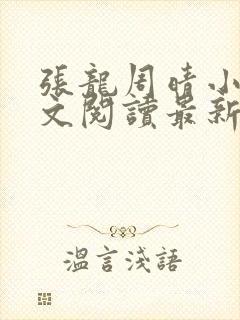 張龍周晴小
文閱讀最新
溫言淺語